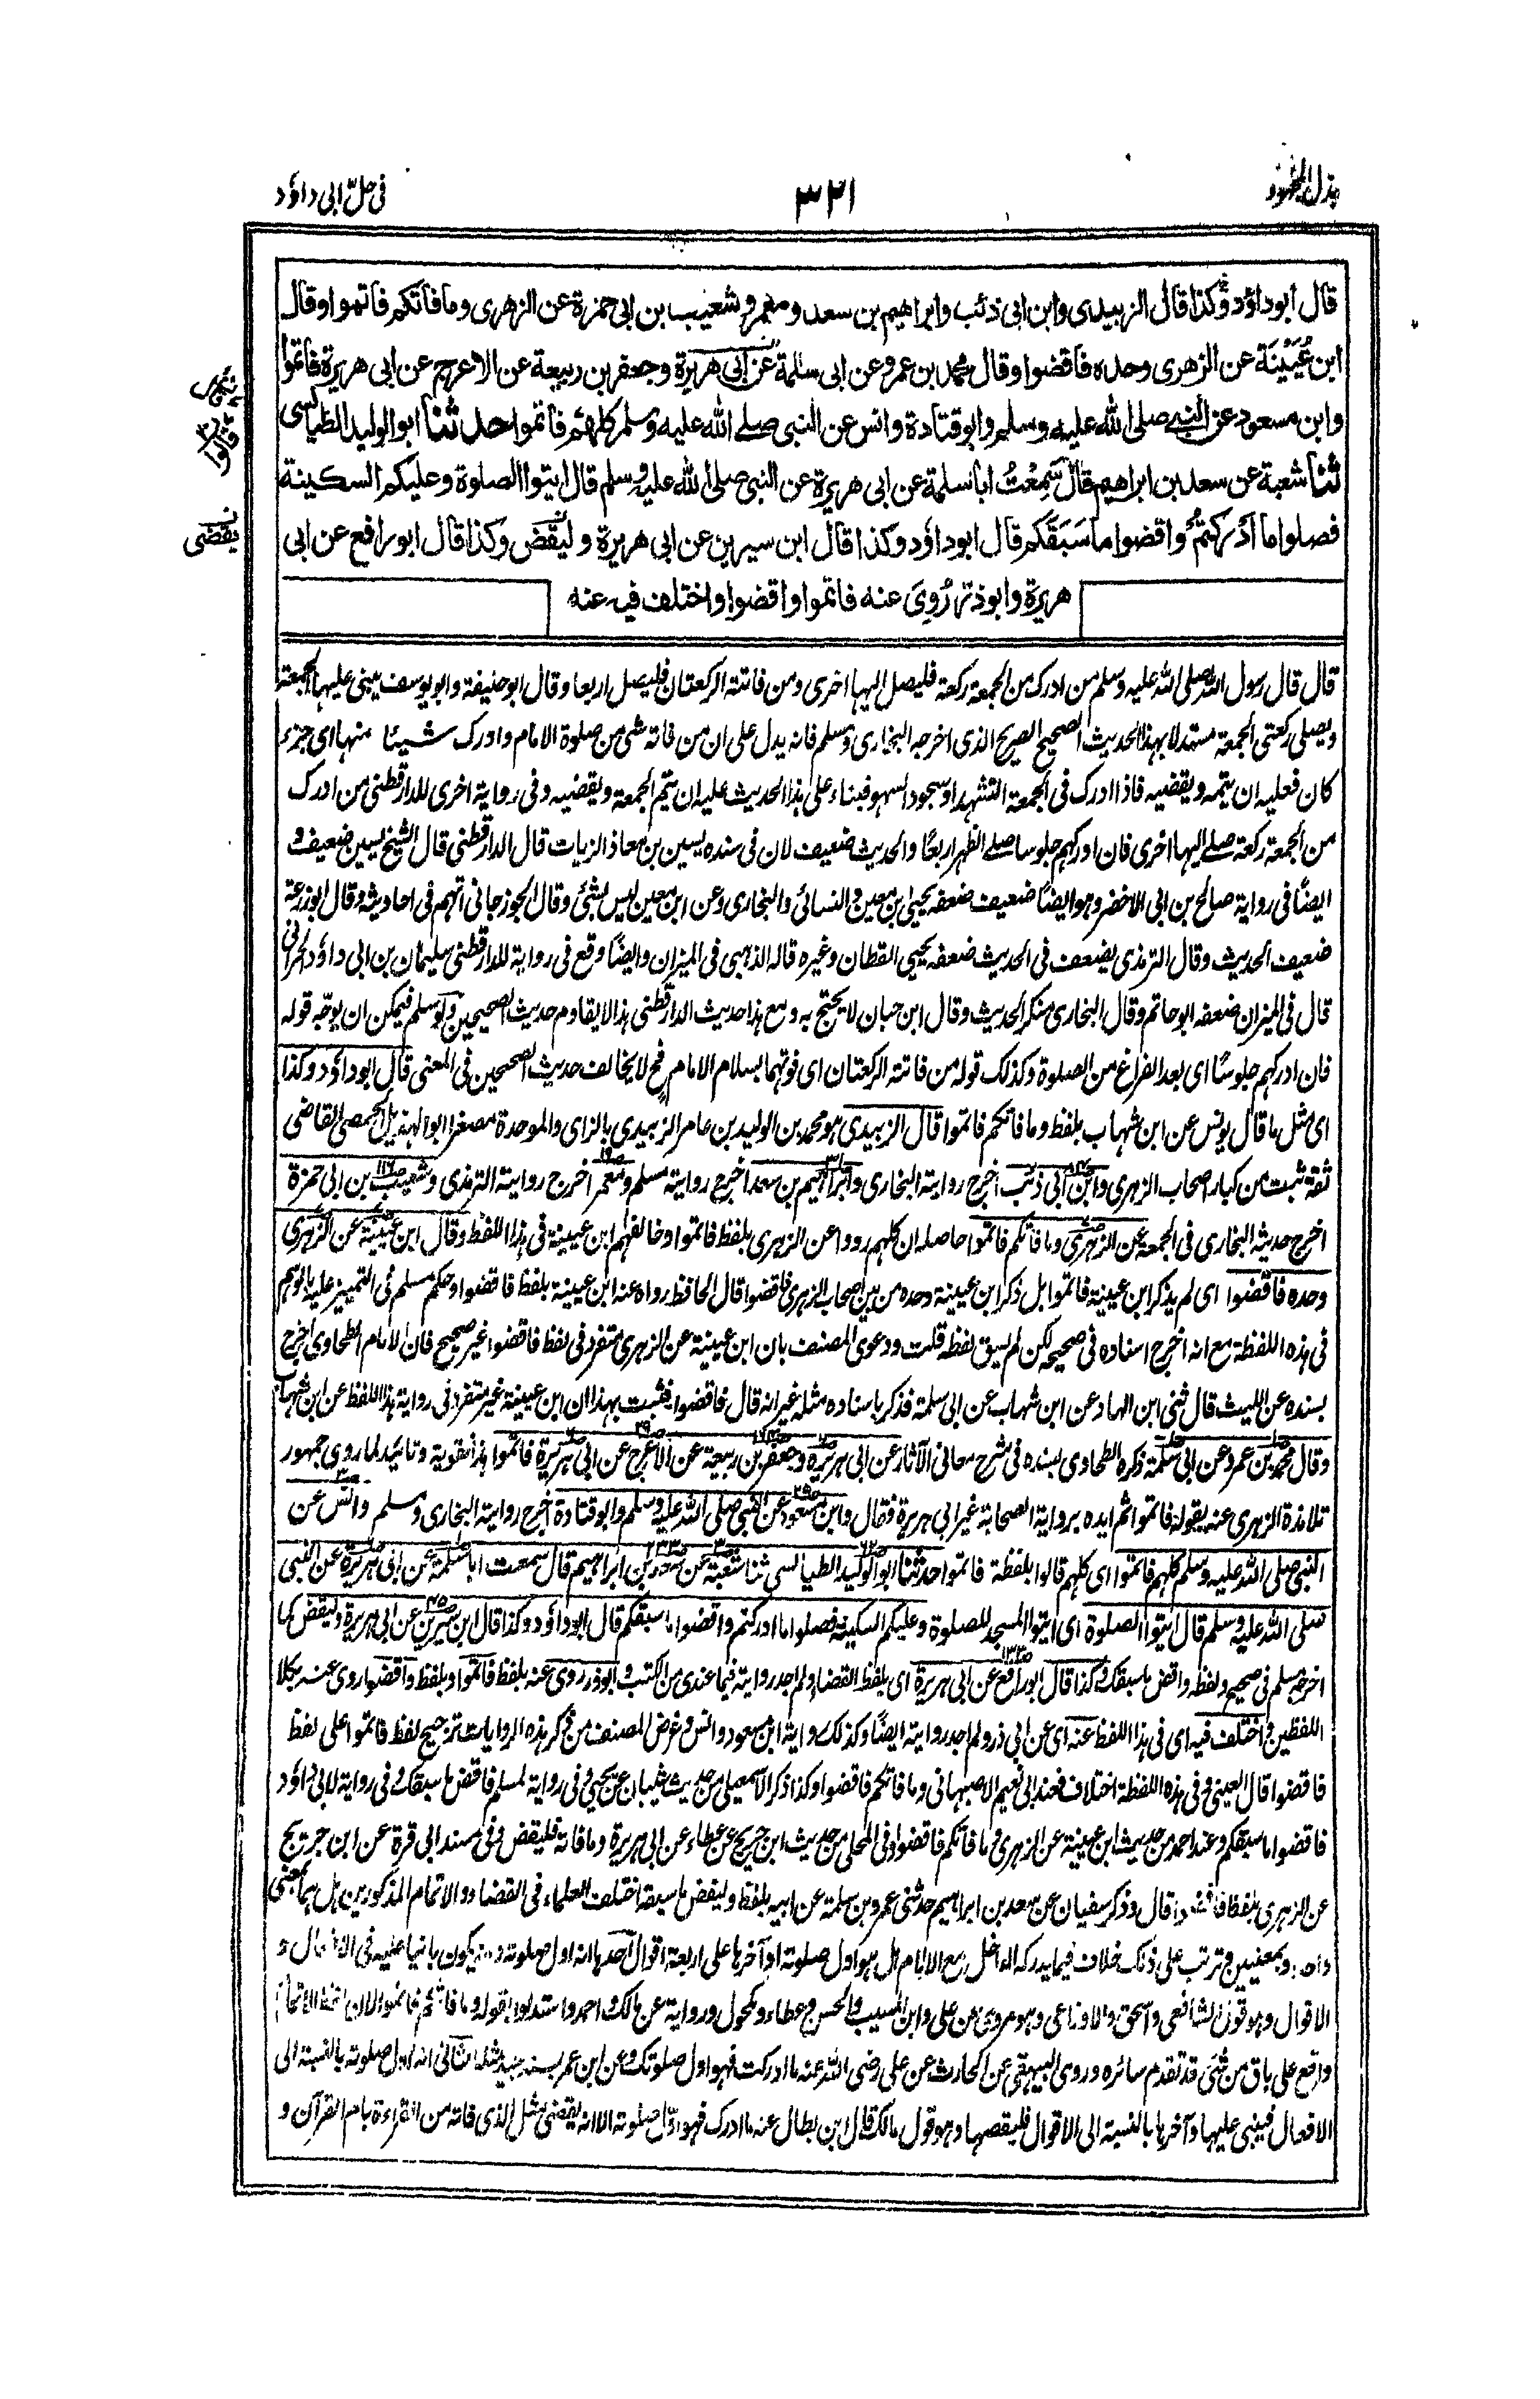 بذل المجهود
٣٢١
في حل ابي داؤد
قال ابوداؤد وكذا قال الزبيدى وابن ابى ذئب وابراهيم بن سعد ومعمر وشعيب بن ابى حمزة عن الزهرى وما فاتكم فاتموا وقال
ابن عُيَيْنَة عن الزهرى وحده فاقضوا وقال محمد بن عمرو عن ابى سلمة عن ابى هريرة وجعفر بن ربيعة عن الاعرج عن ابى هريرة فاتموا
وابن مسعود عن النبى صلى الله عليه وسلم وابو قتادة وانس عن النبى صلى الله عليه وسلم كلهم فاتموا حدثنا ابو الوليد الطيالسى
قالوا
ثنا شعبة عن سعد بن ابراهيم قال سَمِعْتُ ابا سلمة عن ابى هريرة عن النبى صلى الله عليه وسلم قال ايتوا الصلوة وعليكم السكينة
فصلوا ما ادركتم واقضوا ما سَبَقَكم قال ابوداؤد وكذا قال ابن سيرين عن ابى هريرة وليَقْض وكذا قال ابو رافع عن ابى
يقضى
هريرة وابوذر رُوِىَ عنه فاتموا واقضوا واختلف فيه عنه
قال قال رسول الله صلى الله عليه وسلم من ادرك من الجمعة ركعة فليصل اليها اخرى ومن فاتته الركعتان فليصل اربعا وقال ابو حنيفة وابو يوسف يبنى عليها الجمعة
ويصلى ركعتى الجمعة مستدلا بهذا الحديث الصحيح الصريح الذى اخرجه البخارى ومسلم فانه يدل على ان من فاته شئ من صلوة الامام وادرك شيئا منها اى جزء
كان فعليه ان يتمه ويقضيه فاذا ادرك فى الجمعة التشهد او سجود السهو فبناء على هذا الحديث عليه ان يتم الجمعة ويقضيه وفى رواية اخرى للدارقطنى من ادرك
من الجمعة ركعة صلى اليها اخرى فان ادركهم جلوسا صلى الظهر اربعًا والحديث ضعيف لان فى سنده يسين بن معاذ الزيات قال الدارقطنى قال الشيخ يسين ضعيف و
ايضًا فى رواية صالح بن ابى الاخضر وهو ايضًا ضعيف ضعفه يحيى ابن معين والنسائى والبخارى وعن ابن معين ليس بشئ وقال الجوزجانى اتهم فى احاديثه وقال ابو زرعة
ضعيف الحديث وقال الترمذى يضعف فى الحديث ضعفه يحيى القطان وغيره قاله الذهبى فى الميزان وايضًا وقع فى رواية للدارقطنى سليمان بن ابى داؤد الحرانى
قال فى الميزان ضعفه ابو حاتم وقال البخارى منكر الحديث وقال ابن حبان لا يحتج به ومع هذا حديث الدارقطنى هذا لا يقاوم حديث الصحيحين ولو سلم فيمكن ان يوجّه قوله
فان ادركهم جلوسًا اى بعد الفراغ من الصلوة وكذلك قوله من فاتته الركعتان اى فوتهما بسلام الامام فح لا يخالف حديث الصحيحين فى المعنى قال ابو داؤد وكذا
اى مثل ما قال يونس عن ابن شهاب بلفظ وما فاتكم فاتموا قال الزبيدى هو محمد بن الوليد بن عامر الزبيدى بالزاى والموحدة مصغرا ابو الهذيل الحمصى القاضى
ثقة ثبت من كبار اصحاب الزهرى وابن ابى ذئب اخرج روايته البخارى وابراهيم بن سعد اخرج روايته مسلم ومعمر اخرج روايته الترمذى وشعيب بن ابى حمزة
اخرج حديثه البخارى فى الجمعة عن الزهرى وما فاتكم فاتموا حاصله ان كلهم رووا عن الزهرى بلفظ فاتموا وخالفهم ابن عيينة فى هذا اللفظ وقال ابن عيينة عن الزهرى
وحده فاقضوا اى لم يذكر ابن عيينة فاتموا بل ذكر ابن عيينة وحده من بين اصحاب الزهرى فاقضوا قال الحافظ رواه عنه ابن عيينة بلفظ فاقضوا وحكم مسلم فى التمييز عليه بالوهم
فى هذه اللفظة مع انه اخرج اسناده فى صحيحه لكن لم يسق لفظه قلت ودعوى المصنف بان ابن عيينة عن الزهرى متفرد فى لفظ فاقضوا غير صحيح فان الامام الطحاوى اخرج
بسنده عن الليث قال ثنى ابن الهاد عن ابن شهاب عن ابى سلمة فذكر باسناده مثله غير انه قال فاقضوا فثبت بهذا ان ابن عيينة غير متفرد فى رواية هذا اللفظ عن ابن شهاب
وقال محمد بن عمرو عن ابى سلمة ذكره الطحاوى بسنده فى شرح معانى الآثار عن ابى هريرة وجعفر بن ربيعة عن الاعرج عن ابى هريرة فاتموا هذا تقوية وتائيد لما روى جمهور
تلامذة الزهرى عنه بقوله فاتموا ثم ايده برواية الصحابة غير ابى هريرة فقال وابن مسعود عن النبى صلى الله عليه وسلم وابو قتادة اخرج روايته البخارى ومسلم وانس عن
النبى صلى الله عليه وسلم كلهم فاتموا اى كلهم قالوا بلفظة فاتموا حدثنا ابو الوليد الطيالسى ثنا شعبة عن سعد بن ابراهيم قال سمعت ابا سلمة عن ابى هريرة عن النبى
صلى الله عليه وسلم قال ايتوا الصلوة اى ايتوا المسجد للصلوة وعليكم السكينة فصلوا ما ادركتم واقضوا ما سبقكم قال ابو داؤد وكذا قال ابن سيرين عن ابى هريرة وليقض كما
اخرجه مسلم فى صحيحه ولفظه واقض ما سبقك وكذا قال ابو رافع عن ابى هريرة اى بلفظ القضاء ولم اجد روايته فيما عندى من الكتب وابو ذر روى عنه بلفظ فاتموا وبلفظ واقضوا روى عنه بكلا
اللفظين واختلف فيه اى فى هذا اللفظ عنه اى عن ابى ذر ولم اجد روايته ايضًا وكذلك رواية ابن مسعود وانس وغرض المصنف من ذكر هذه الروايات ترجيح لفظ فاتموا على لفظ
فاقضوا قال العينى وفى هذه اللفظة اختلاف فعند ابى نعيم الاصبهانى وما فاتكم فاقضوا وكذا ذكر الاسمعيلى من حديث شيبان عن يحيى وفى رواية لمسلم فاقض ما سبقك وفى رواية لابى داؤد
فاقضوا ما سبقكم وعند احمد من حديث ابن عيينة عن الزهرى وما فاتكم فاقضوا وفى المحلى من حديث ابن جريج عن عطاء عن ابى هريرة وما فاته فليقض وفى مسند ابى قرة عن ابن جريج
عن الزهرى بلفظ فاقضوا قال وذكر سفيان عن سعد بن ابراهيم حدثنى عمرو بن سلمة عن ابيه بلفظ وليقض ما سبقه اختلف العلماء فى القضاء والاتمام المذكورين هل هما بمعنى
واحد او بمعنيين وترتب على ذلك خلاف فيما يدركه الداخل مع الامام هل هو اول صلوته او آخرها على اربعة اقوال احدها انه اول صلوته وانه يكون بانيا عليه فى الافعال و
الاقوال وهو قول الشافعى واسحق والاوزاعى وهو مروى عن على وابن المسيب والحسن وعطاء ومكحول ورواية عن مالك واحمد واستدلوا بقوله وما فاتكم فاتموا لان لفظ الاتمام
واقع على باق من شئ قد تقدم سائره وروى البيهقى عن الحارث عن على رضى الله عنه ما ادركت فهو اول صلوتك وعن ابن عمر بسند جيد مثله الثانى انه اول صلوته بالنسبة الى
الافعال فيبنى عليها وآخرها بالنسبة الى الاقوال فليقضها وهو قول مالك قال ابن بطال عنه ما ادرك فهو اول صلوته الا انه يقضى مثل الذى فاته من القراءة بام القرآن و